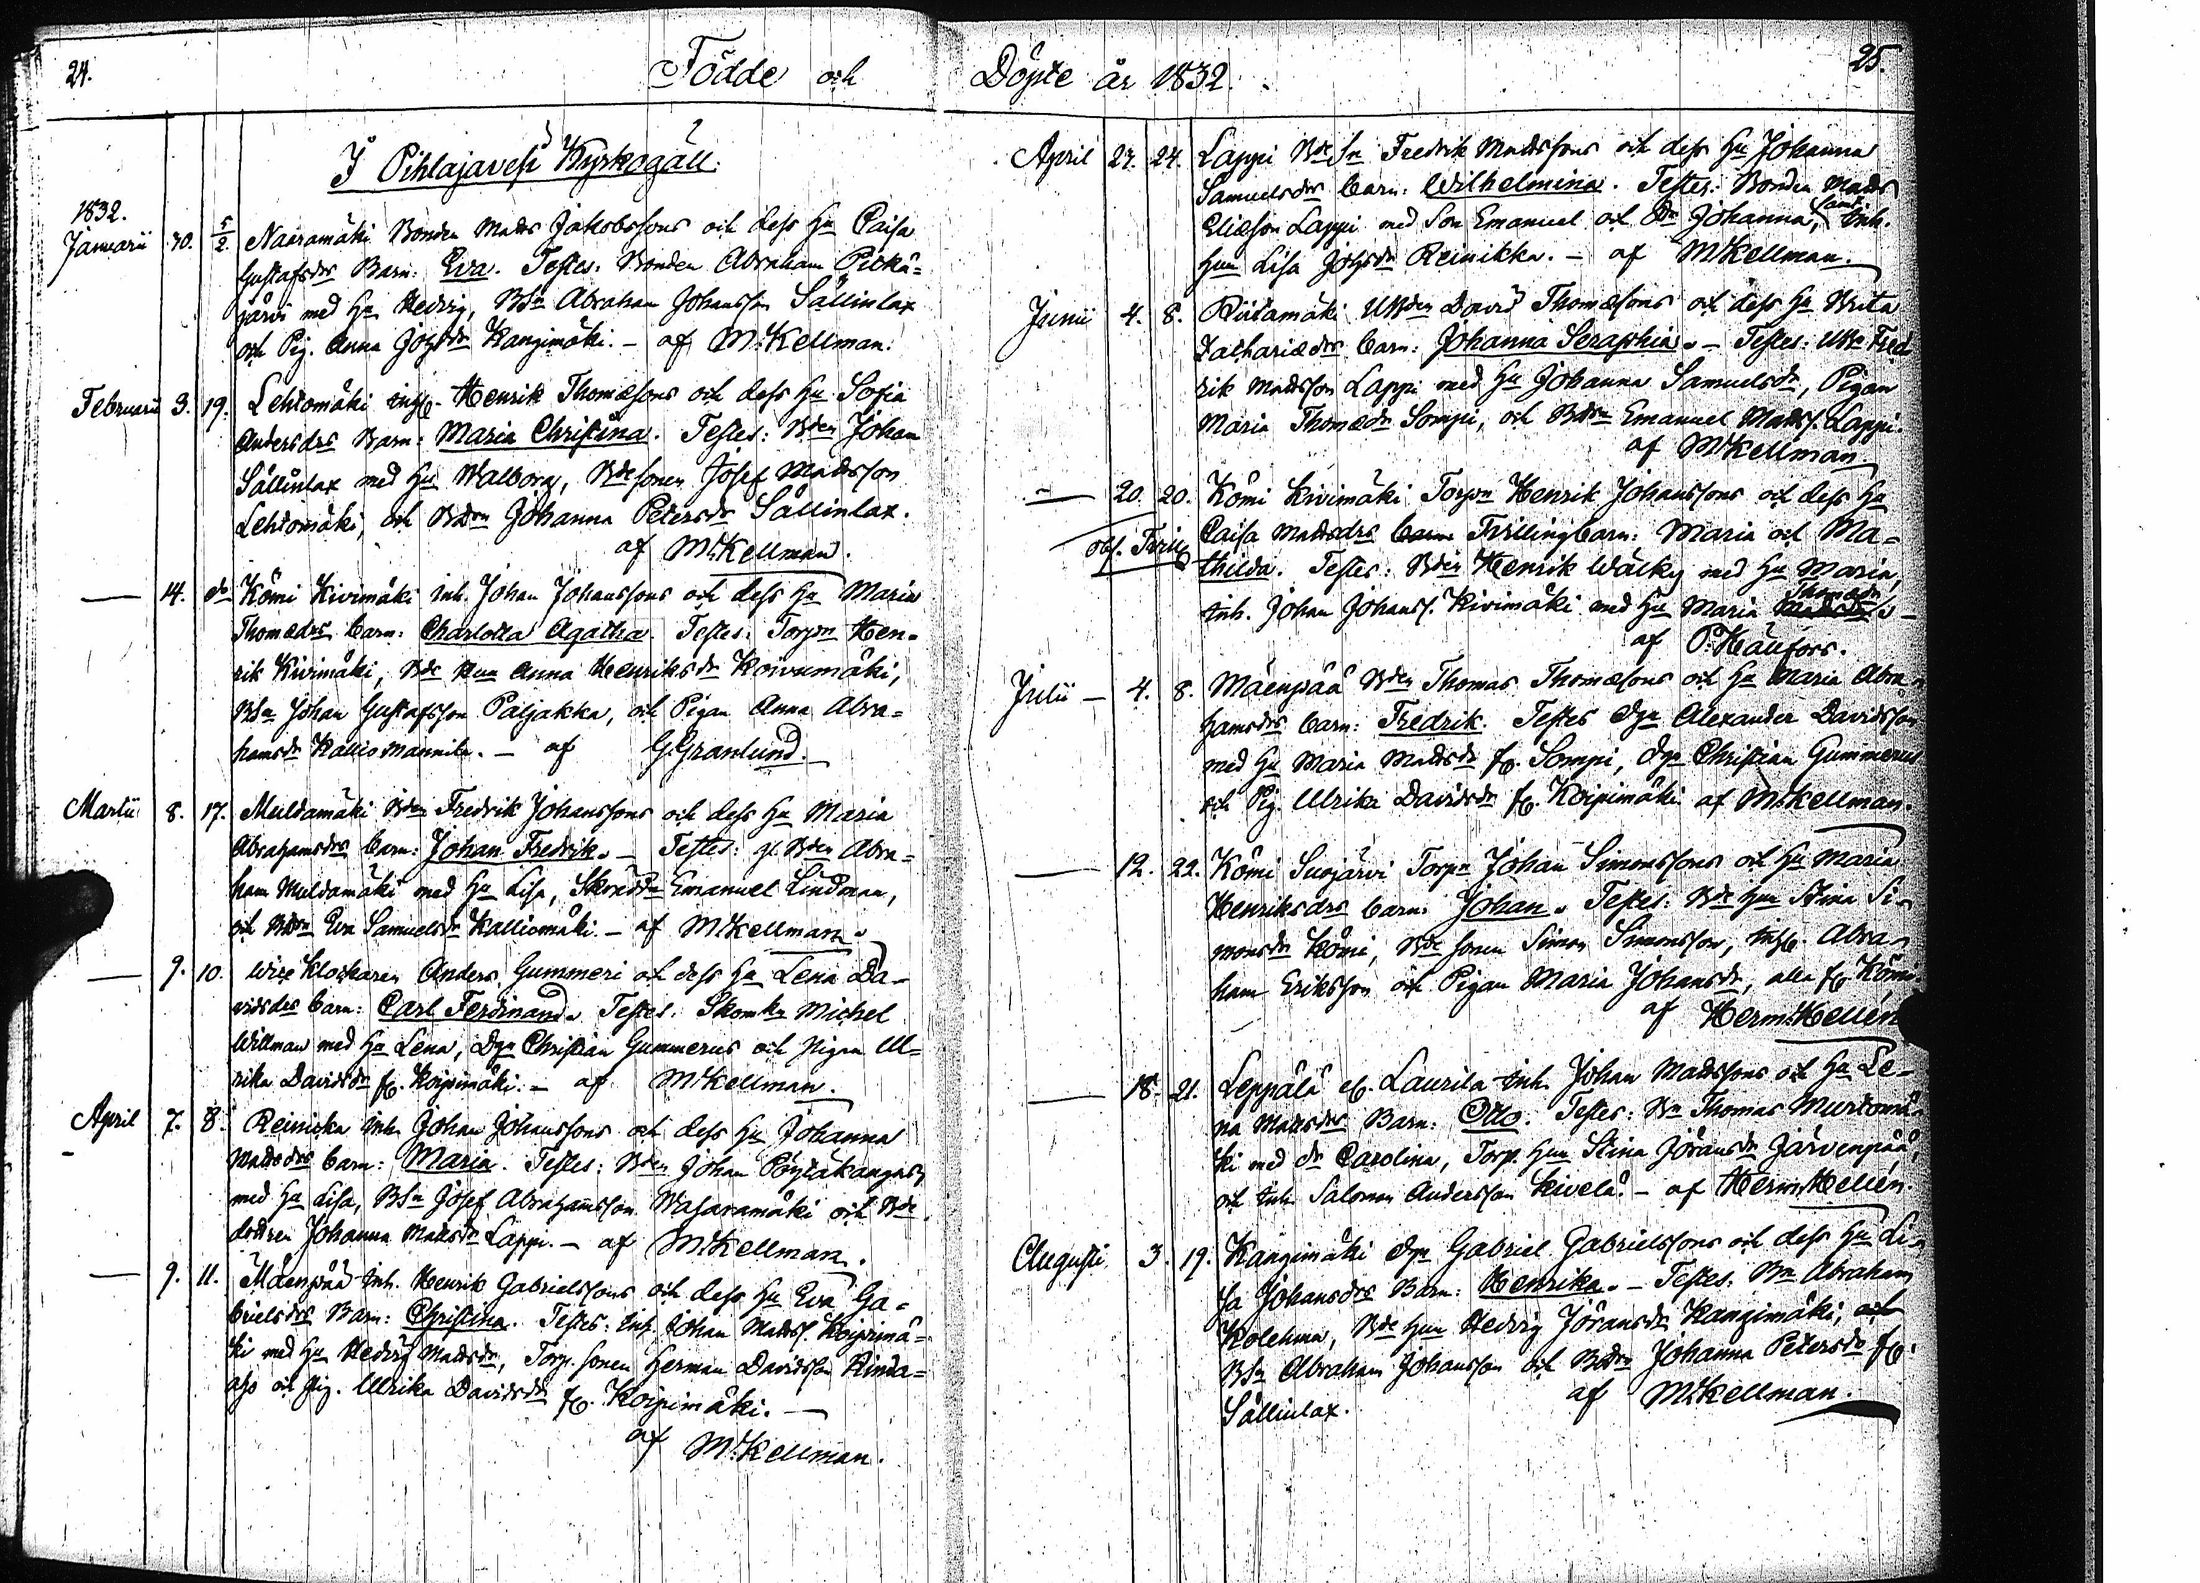 24.
Födde och
I Pihlajavesi Kyrkogäll.
1832.
Januarii 30. 5/2. Naaramäki Bonden Matts Jakobssons och dess Hu Caisa
Gustafsdrs Barn: Eva. Testes: Bonden Abraham Pitkä=
järvi med Hu Hedvig, BSn Abraham Johansson Sällinlax
och Pig. Anna Johsdr Kangimäki. – af M:Kellman.
Februarii 3. 19. Lehtomäki Inhs. Henrik Thomæsons och dess Hu Sofia
Andersdrs Barn: Maria Christina. Testes: Bden Johan
Sällinlax med Hu Walborg, Bdesonen Josef Mattsson
Lehtomäki, och Bdrn Johanna Petersdr Sällinlax.
af M:Kellman.
— 14. do Kömi Kivimäki Inh. Johan Johanssons och dess Hu Maria
Thomædrs barn: Charlotta Agatha. Testes: Torpn Hen=
rik Kivimäki, Bde Hun Anna Henriksdr Koivumäki,
BSn Johan Gustafsson Paljakka, och Pigan Anna Abra=
hamsdr Kalliomannila. – af G.Granlund.
Martii 8. 17. Muldamäki Bden Fredrik Johanssons och dess Hu Maria
Abrahamsdrs barn: Johan Fredrik. – Testes: gl. Bden Abra=
ham Muldamäki med Hu Lisa, Skrädd Emanuel Lindman,
och Bdrn Eva Samuelsdr Kalliomäki. – af M:Kellman.
— 9. 10. Wice Klockaren Anders Gummeri och dess Hu Lena Da=
vidsdrs barn: Carl Ferdinand. Testes. Skomkn Michel
Willman med Hu Lena, Dgn Christian Gummerus och Pigan Ul=
rika Davidsdr fr. Koipimäki. – af M:Kellman.
April 7. 8. Reinicka Inh Johan Johanssons och dess Hu Johanna
Mattsdrs barn: Maria. Testes: Bden Johan Pöytäkangas
med Hu Lisa, BSn Josef Abrahamsson Wasaramäki och Bde
dottren Johanna Mattsdr Lappi. – af M:Kellman.
— 9. 11. Mäenpää Inh. Henrik Gabrielssons och dess Hu Eva Ga=
brielsdrs Barn: Christina. Testes: Inh. Johan Mattss. Koipimä=
ki med Hu Hedvig Mattsdr, Torp. sonen Herman Davidsson Rinda=
aho och Pig. Ulrika Davidsdr fr. Koipimäki. —
af M:Kellman.
Döpte år 1832.
25.
April 23. 24. Lappi BdeSn Fredrik Mattssons och dess Hu Johanna
Samuelsdrs barn: Wilhelmina. Testes: Bonden Matts
Eliæson Lappi med Son Emanuel och Dr Johanna, samt Inh.
Hun Lisa Johsdr Reinikka. – af M:Kellman.
Junii 4. 8. Riitamäki UBden David Thomæsons och dess Hu Brita
Zachariædrs barn: Johanna Seraphia. – Testes: UBn Fred
rik Mattsson Lappi med Hu Johanna Samuelsdr, Pigan
Maria Thomædr Sompi, och BdSn Emanuel Mattss. Lappi.
af M:Kellman.
— 20. 20. Kömi Kivimäki Torpn Henrik Johanssons och dess Hu
obs. Tvill. Caisa Mattsdrs Tvillingbarn: Maria och Ma=
thilda. Testes: Bden Henrik Wälky med Hu Maria,
Inh. Johan Johanss. Kivimäki med Hu Maria Thomædr –
af P:Hällfors.
Julii — 4. 8. Mäenpää Bden Thomas Thomæsons och Hu Maria Abra=
hamsdrs barn: Fredrik. Testes Dgn Alexander Davidsson
med Hu Maria Mattsdr fr. Sompi, Dgn Christian Gummerus
och Pig. Ulrika Davidsdr fr. Koipimäki af M:Kellman.
— 12. 22. Kömi Suojärvi Torpn Johan Simonssons och Hu Maria
Henriksdrs barn: Johan. Testes: Bde Hun Stina Si=
monsdr Kömi, Bde sonen Simon Simonsson, Inhs. Abra=
ham Eriksson och Pigan Maria Johansdr, alla fr Kömi
af Herm:Hellén
— 18. 21. Leppälä el. Laurila Inh. Johan Mattssons och Hu Le=
na Mattsdrs Barn: Otto. Testes: Bn Thomas Murtomä=
ki med dr Carolina, Torp. Hun Stina Jöransdr Järvenpää,
och Inh Salomon Andersson Kivelä. – af Herm:Hellén.
Augusti 3. 19. Kangimäki Dgn Gabriel Gabrielssons och dess Hu Li=
sa Johansdrs Barn: Henrika. – Testes. Bn Abraham
Kolehma, Bde Hun Hedvig Jöransdr Kangimäki, och
BSn Abraham Johansson och Bdrn Johanna Petersdr fr.
Sällinlax. af M:Kellman.